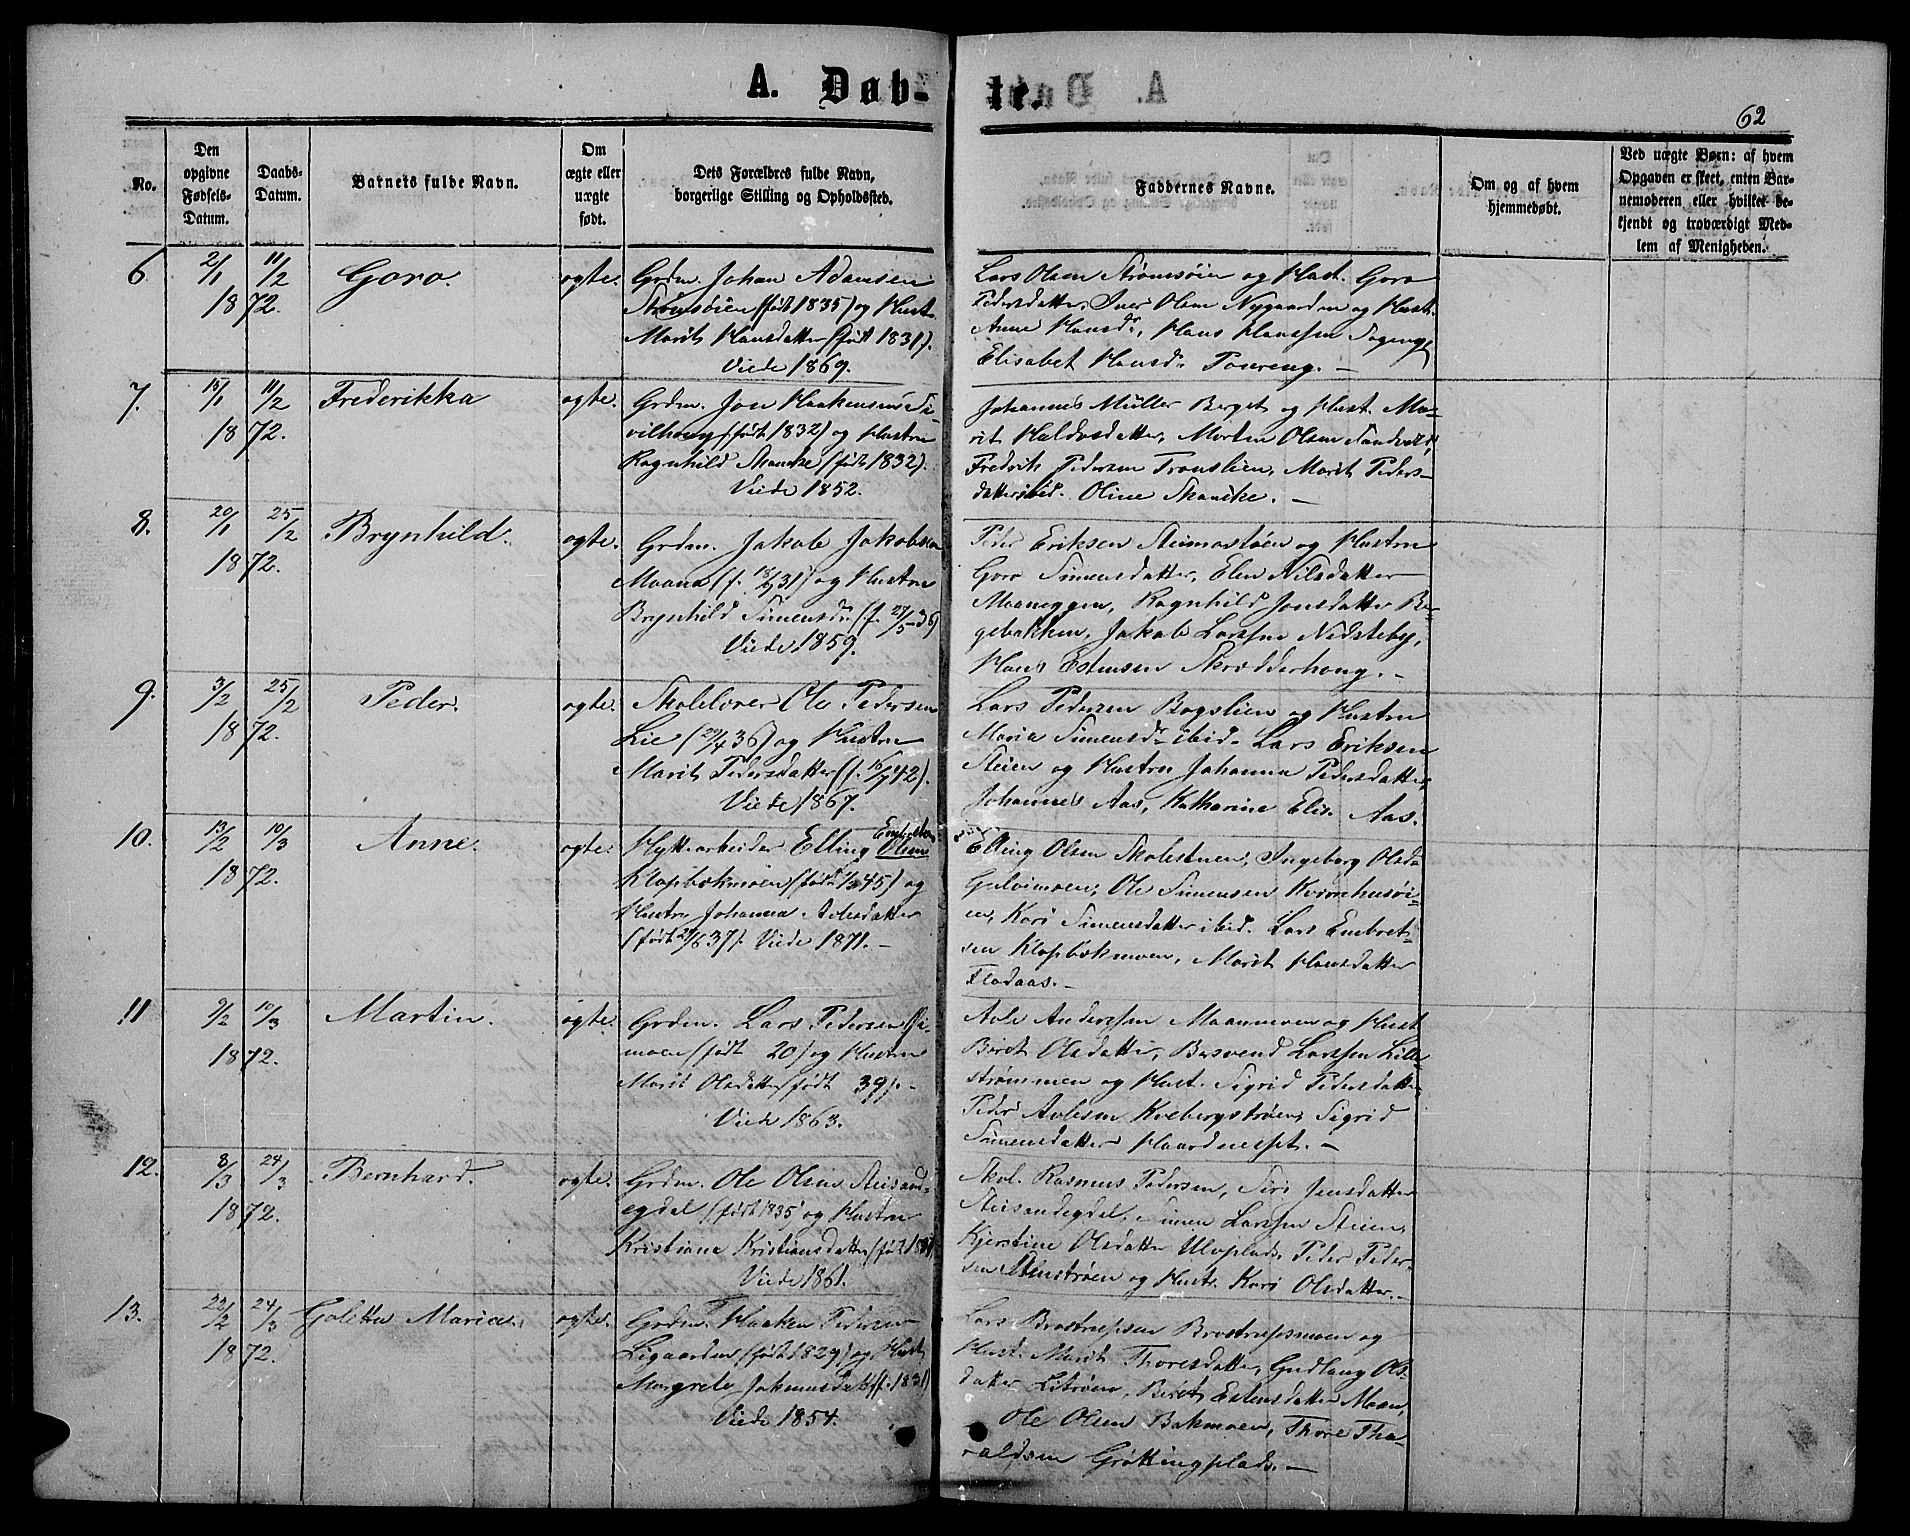 A. Døb-
te.
62
No.
Den
opgivne
Fødsels-
Datum.
Daabs-
Datum.
Barnets fulde Navn.
Om
ægte eller
uægte
født.
Dets Forældres fulde Navn,
borgerlige Stilling og Opholdssted.
Faddernes Navne.
Om og af hvem
hjemmedøbt.
Ved uægte Børn: af hvem
Opgaven er skeet, enten Bar-
nemoderen eller hvilket be-
kjendt og troværdigt Med-
lem af Menigheden.
6. 2/1 11/2 1872. Goro. ægte.
Grdm. Johan Adamsen
Strømsøien (født 1835) og Hust.
Marit Hansdatter (født 1831).
Viede 1869.
Lars Olsen Strømsøien og Hust. Goro
Pedersdatter, Iver Olsen Nygaarden og Hust.
Anne Hansdr, Hans Hanssen
Elisabet Hansd.
7. 15/1 11/2 1872. Frederikka ægte.
Grdm. Jon Haakensen
(født 1832) og Hustru
Ragnhild Skancke (født 1832).
Viede 1852.
Johannes Müller Berget og Hust. Ma-
rit Haldosdatter, Morten Olsen
Fredrik Pedersen Tronslien, Marit Peders-
datter ibid. Oline Skancke. —
8. 20/1 25/2 1872. Brynhild. ægte.
Grdm. Jakob Jakobsen
Moan (f. 18/ 31) og Hustru
Brynhild Simensdr. (f. 27/5 36)
Viede 1859.
Peder Eriksen og Hustru
Goro Simensdatter, Elen Nilsdatter
Maaneggen, Ragnhild Jonsdatter Bæ-
gebakken, Jakob Larssen Nedsteby,
Hans Estensen Skrædderhaug. —
9. 3/2 25/2 1872. Peder. ægte.
Skolelærer Ole Pedersen
Lie (29/4 36) og Hustru
Marit Pedersdatter (f. 16/7 42).
Viede 1867.
Lars Pedersen Bogslien og Hustru
Maria Simensdr ibid. Lars Eriksen
Steien og Hustru Johanna Pedersdatter,
Johannes Aas, Katharine Elis. Aas.
10. 13/2 10/3 1872. Anne. ægte.
Hyttearbeider Elling Olsen
Klopbækmoen (født 1/3 45) og
Hustru Johanna Avlesdatter
(født 29/6 37). Viede 1871. —
Elling Olsen Skolestuen, Ingeborg Olsdr
Ole Simensen Kværnhusøi-
en, Kari Simensdatter ibid. Lars Embret-
sen Klopbækmoen, Marit Hansdatter
Flodaas. —
11 9/2 10/3 1872. Martin. ægte.
Grdm. Lars Pedersen
moen (født 20) og Hustru
Marit Olsdatter (født 39). —
Viede 1863.
Avle Anderssen Maanmoen og Hust
Beret Olsdatter, Bersvend Larssen Lille-
strømmen og Hust. Sigrid Pedersdatter
Peder Avlesen Kvebergstrøen, Sigrid
Simensdatter Haardnesset. —
12. 8/3 24/3 1872. Bernhard. ægte.
Grdm. Ole Olsen Steisand-
egdal (født 1835) og Hustru
Kristiane Kristiansdatter (født
Viede 1861.
Skol. Rasmus Pedersen, Siri Jensdatter
Steisandegdal, Simen Larssen Steien,
Kjerstine Olsdatter Ulvplads. Peder Peder-
sen og Hust. Kari Olsdatter. —
13. 22/2 24/3 1872. Goletta Maria. ægte.
Grdm. Haaken Pedersen
Ligaarden (født 1829) og Hust.
Margrete Johnsdatt. (f. 1831)
Viede 1854.
Lars Brostrupsen Brostrupsmoen og
Hust. Marit Thoresdatter, Gudlaug Ols-
datter Litrøen, Beret Estensdatter Moan,
Ole Olsen Bakmoen, Thore Tho-
raldsen Grøttingplads. —